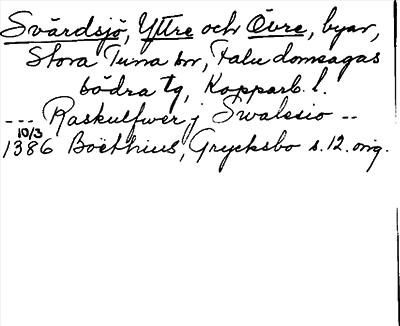 Svärdsjö, Yttre och Övre, byar,
Stora Tuna sn, Falu domsagas
södra tg, Kopparb. l.
--- Raskulfwer j Swalesio --
10/3
1386 Boëthius, Grycksbo s. 12. orig.